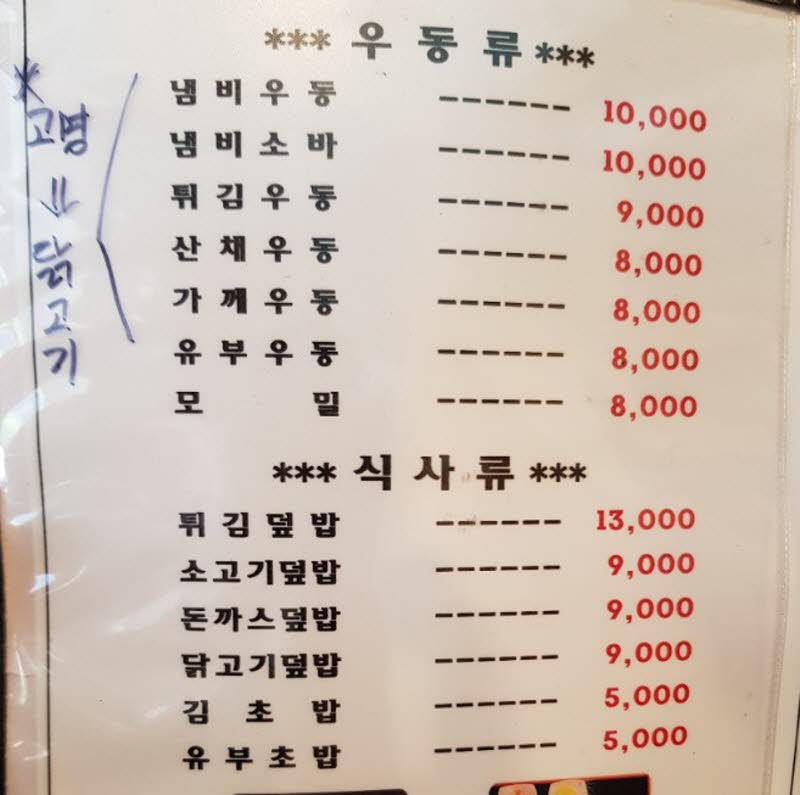 *** 우동류 ***
냄비우동 ------ 10,000
냄비소바 ------ 10,000
튀김우동 ------ 9,000
산채우동 ------ 8,000
가께우동 ------ 8,000
유부우동 ------ 8,000
모밀 ------ 8,000
*고명
⇓
닭고기
*** 식사류 ***
튀김덮밥 ------ 13,000
소고기덮밥 ------ 9,000
돈까스덮밥 ------ 9,000
닭고기덮밥 ------ 9,000
김초밥 ------ 5,000
유부초밥 ------ 5,000